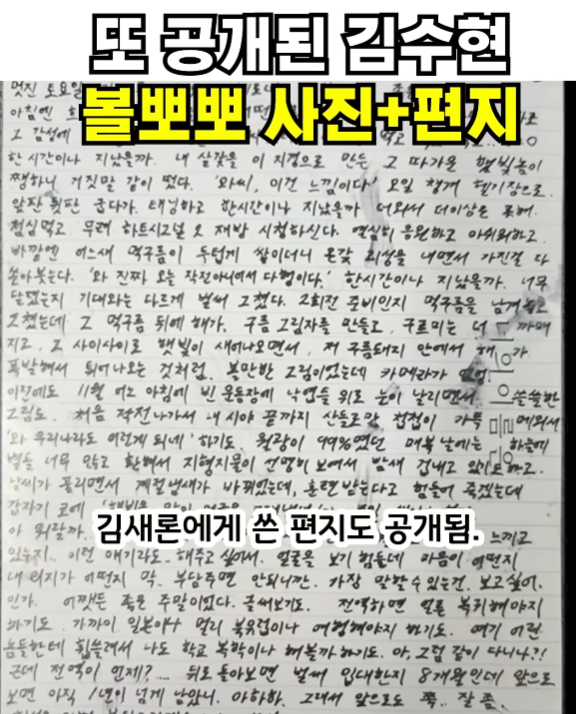 또 공개된 김수현
볼뽀뽀 사진+편지
멋진 토요일
아침엔
그 감성에
한 시간이나 지났을까. 내 살갗을 이 지경으로 만든 그 따가운 햇빛놈이
쨍하니 거짓말 같이 떴다. '와씨, 이건 느낌이다' 오일 챙겨 헬기장으로.
앞판 뒷판 굽다가. 태닝하고 한시간이나 지났을까 더워서 더이상은 못해.
점심먹고 무려 하트시그널 오 재방 시청하신다. 열심히 응원하고 아쉬워하고.
바깥엔 어느새 먹구름이 두텁게 쌓이더니 온갖 괴성을 내면서 가진걸 다
쏟아붓는다. '와 진짜 오늘 작전아니여서 다행이다.' 한시간이나 지났을까. 너무
달랬는지 기대와는 다르게 벌써 그쳤다. 2회전 준비인지 먹구름을 남겨놓고
그쳤는데 그 먹구름 뒤에 해가. 구름 그림자를 만들고, 구르미는 더 까매
지고, 그 사이사이로 햇빛이 새어나오면서, 저 구름돼지 안에서 해가
폭발해서 튀어나오는 것처럼. 볼만한 그림이었는데 카메라가
이전에도 11월 어느 아침에 빈 운동장에 낙엽들 위로 눈이 날리면서 쓸쓸한
그림도. 처음 작전나가서 내 시야 끝까지 산들로만 첩첩이 가득 메워서
'와 우리나라도 이런게 되네' 하기도. 월광이 99%였던 매복 날에는 하늘에
별들 너무 많고 환해서 지형지물이 선명히 보여서 밤새 겁내고 있기도하고.
날씨가 풀리면서 계절냄새가 바뀌었는데, 훈련 받는다고 힘들어 죽겠는데
갑자기 코에
아 뭐랄까.
김새론에게 쓴 편지도 공개됨.
느끼고
있는지.. 이런 얘기라도 해주고 싶어서. 얼굴을 보기 힘든데 마음이 어떤지
내 의지가 어떤지 막. 부담주면 안되니깐. 가장 말할 수 있는건. 보고싶어.
인가. 어쨌든 좋은 주말이었다. 글써보기도. 전역하면 얼른 복귀해야지
하기도. 가까이 일본이나 멀리 북유럽이나 여행해야지 하기도. 여기 어린
놈들한테 휩쓸려서 나도 학교 복학이나 해볼까 하기도. 아, 그럼 같이 다니나?!
근데 전역이 언제?.... 뒤로 돌아보면 벌써 입대한지 8개월인데 앞으로
보면 아직 1년이 넘게 남았니. 아하하. 그래서 앞으로도 쭉.. 잘 좀.